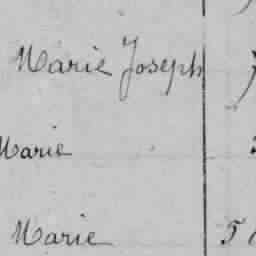 Marie Joseph
Marie
Marie